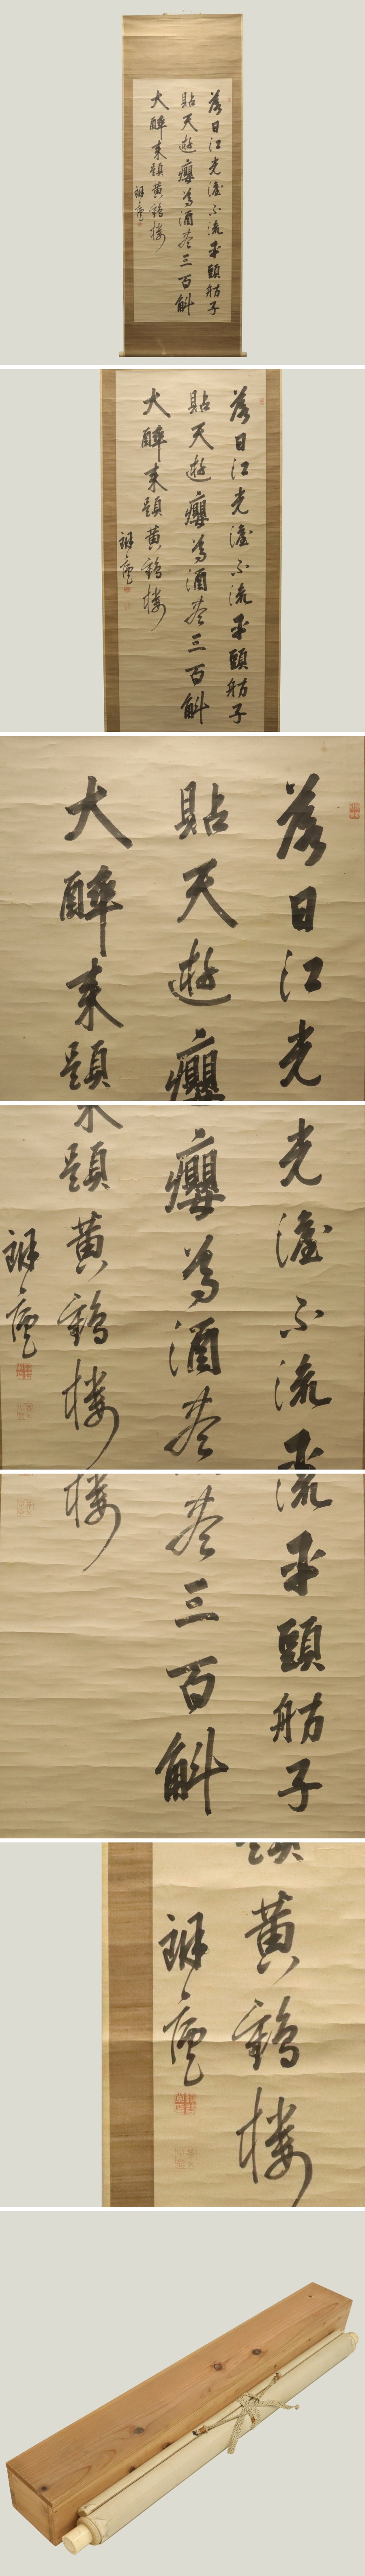 落日江光澹不流平頭舫子
貼天遊癭為酒三百斛
大醉来題黄鶴楼